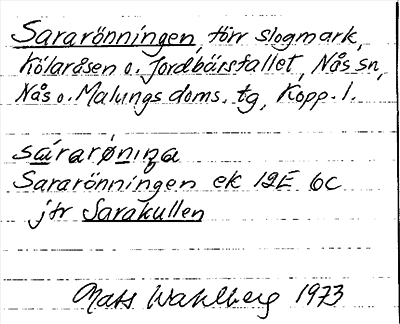 Sararönningen, förr slogmark,
Kölaråsen o. Jordbärsfallet, Nås sn,
Nås o. Malungs doms. tg, Kopp. l.
Sararönningen ek 12E 6c
jfr Sarakullen
Mats Wahlberg 1973